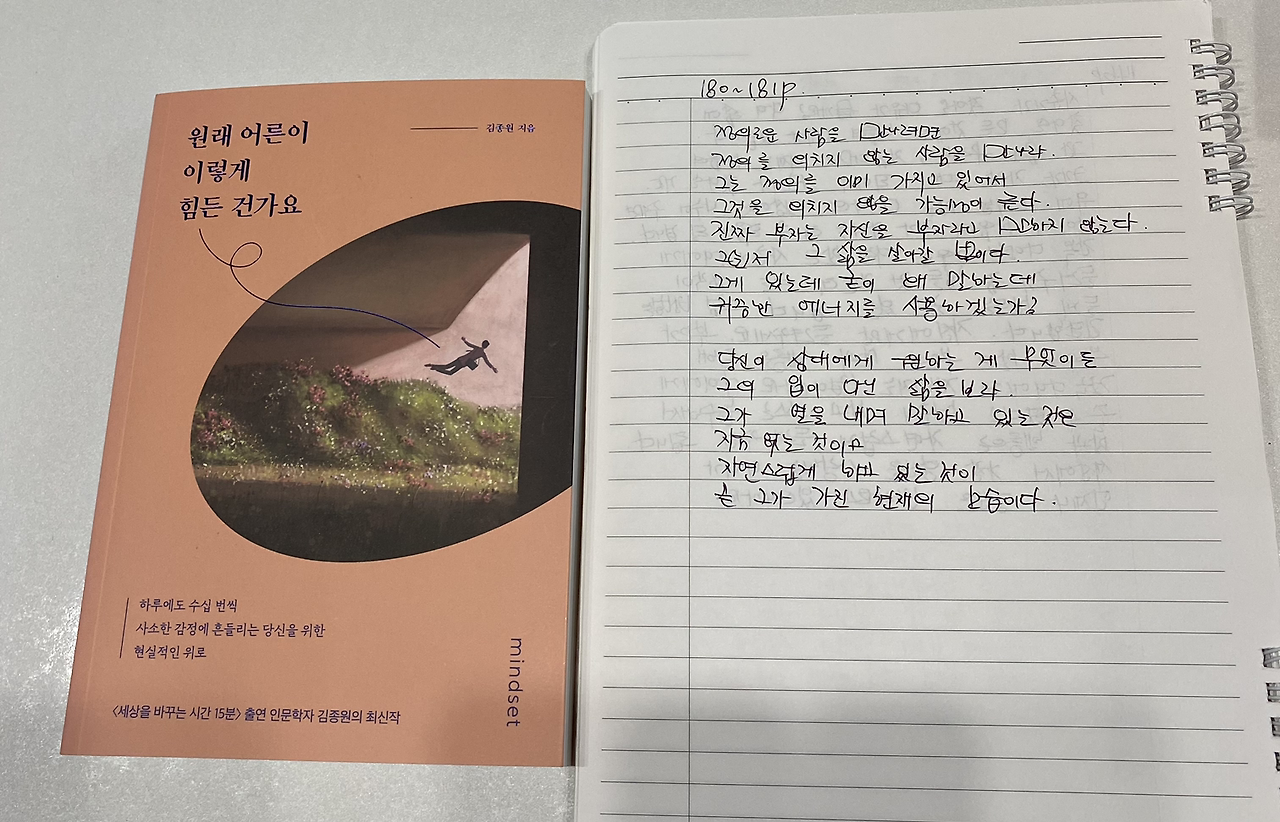 원래 어른이
이렇게
힘든 건가요
김종원 지음
하루에도 수십 번씩
사소한 감정에 흔들리는 당신을 위한
현실적인 위로
mindset
<세상을 바꾸는 시간 15분> 출연 인문학자 김종원의 최신작
180~181p.
정의로운 사람을 만나려면
정의를 외치지 않는 사람을 만나라.
그는 정의를 이미 가지고 있어서
그것을 외치지 않을 가능성이 크다.
진짜 부자는 자신을 부자라고 말하지 않는다.
그저 그 삶을 살아갈 뿐이다.
그게 있는데 굳이 왜 말하는데
귀중한 에너지를 사용하겠는가?
당신이 상대에게 원하는 게 무엇이든
그의 입이 아닌 삶을 보라.
그가 열을 내며 말하고 있는 것은
지금 없는 것이고
자연스럽게 하고 있는 것이
곧 그가 가진 현재의 모습이다.